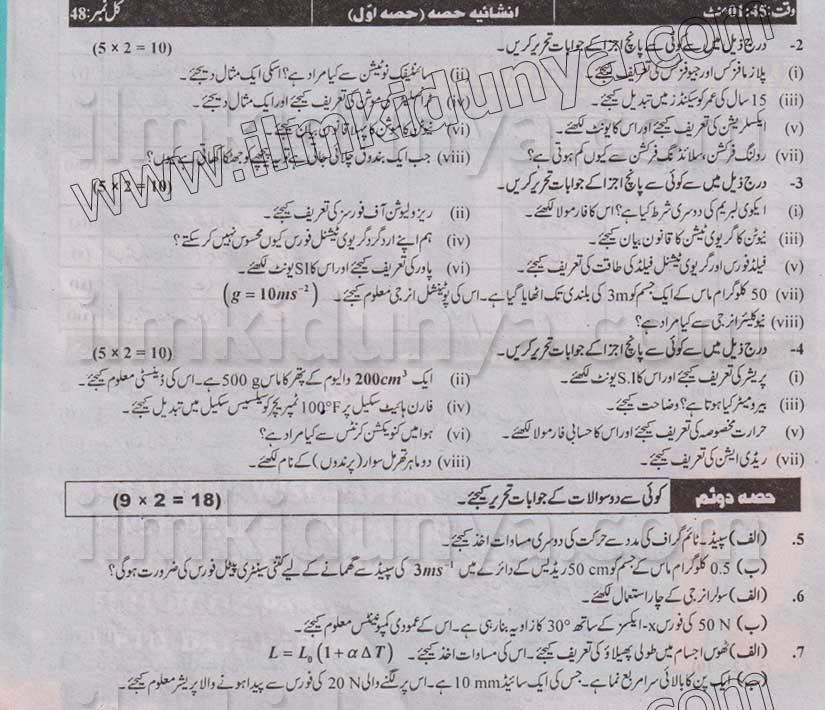 وقت: 01:45 منٹ انشائیہ حصہ (حصہ اوّل) کل نمبر: 48
2- درج ذیل میں سے کوئی سے پانچ اجزا کے جوابات تحریر کریں۔ (5 × 2 = 10)
(i) پلازما فزکس اور جیو فزکس کی تعریف کیجئے۔ (ii) سائنٹیفک نوٹیشن سے کیا مراد ہے؟ اسکی ایک مثال دیجئے۔
(iii) 15 سال کی عمر کو سیکنڈز میں تبدیل کیجئے۔ (iv) موشن کی تعریف کیجئے اور ایک مثال دیجئے۔
(v) ایکسلریشن کی تعریف کیجئے اور اس کا یونٹ لکھئے۔ (vi) نیوٹن کا موشن کا پہلا قانون بیان کیجئے۔
(vii) رولنگ فرکشن، سلائڈنگ فرکشن سے کیوں کم ہوتی ہے؟ (viii) جب ایک بندوق چلائی جاتی ہے تو یہ پیچھے کو جھٹکا کھاتی ہے کیوں؟
3- درج ذیل میں سے کوئی سے پانچ اجزا کے جوابات تحریر کریں۔ (5 × 2 = 10)
(i) ایکوی لبریم کی دوسری شرط کیا ہے؟ اس کا فارمولا لکھئے۔ (ii) ریزولیوشن آف فورسز کی تعریف کیجئے۔
(iii) نیوٹن کا گریوی ٹیشن کا قانون بیان کیجئے۔ (iv) ہم اپنے اردگرد گریوی ٹیشنل فورس کیوں محسوس نہیں کر سکتے؟
(v) فیلڈ فورس اور گریوی ٹیشنل فیلڈ کی طاقت کی تعریف کیجئے۔ (vi) پاور کی تعریف کیجئے اور اس کا SI یونٹ لکھئے۔
(vii) 50 کلوگرام ماس کے ایک جسم کو 3m کی بلندی تک اٹھایا گیا ہے۔ اس کی پوٹینشل انرجی معلوم کیجئے۔ (g = 10ms⁻²)
(viii) نیوکلیئر انرجی سے کیا مراد ہے؟
4- درج ذیل میں سے کوئی سے پانچ اجزا کے جوابات تحریر کریں۔ (5 × 2 = 10)
(i) پریشر کی تعریف کیجئے اور اس کا S.I یونٹ لکھئے۔ (ii) ایک 200cm³ والیوم کے پتھر کا ماس 500 g ہے۔ اس کی ڈینسٹی معلوم کیجئے۔
(iii) بیرومیٹر کیا ہوتا ہے؟ وضاحت کیجئے۔ (iv) فارن ہائیٹ سکیل پر 100°F ٹمپریچر کو سیلسیس سکیل میں تبدیل کیجئے۔
(v) حرارت مخصوصہ کی تعریف کیجئے اور اس کا حسابی فارمولا لکھئے۔ (vi) ہوا میں کنویکشن کرنٹس سے کیا مراد ہے؟
(vii) ریڈی ایشن کی تعریف کیجئے۔ (viii) دو ماہر تھرمل سوار (پرندوں) کے نام لکھئے۔
حصہ دوئم کوئی سے دو سوالات کے جوابات تحریر کیجئے۔ (9 × 2 = 18)
5. (الف) سپیڈ۔ٹائم گراف کی مدد سے حرکت کی دوسری مساوات اخذ کیجئے۔
(ب) 0.5 کلوگرام ماس کے جسم کو 50 cm ریڈیس کے دائرے میں 3ms⁻¹ کی سپیڈ سے گھمانے کے لیے کتنی سینٹری پیٹل فورس کی ضرورت ہوگی؟
6. (الف) سولر انرجی کے چار استعمال لکھئے۔
(ب) 50 N کی فورس x-ایکسز کے ساتھ 30° کا زاویہ بنا رہی ہے۔ اس کے عمودی کمپوننٹس معلوم کیجئے۔
7. (الف) ٹھوس اجسام میں طولی پھیلاؤ کی تعریف کیجئے۔ اس کی مساوات اخذ کیجئے۔ L = L₀ (1 + α Δ T)
(ب) ایک پن کا بالائی سرا مربع نما ہے۔ جس کی ایک سائیڈ 10 mm ہے۔ اس پر لگنے والی 20 N کی فورس سے پیدا ہونے والا پریشر معلوم کیجئے۔
www.ilmkidunya.com
ilmkidunya.com
ilmkidunya.com
ilmkidunya.com